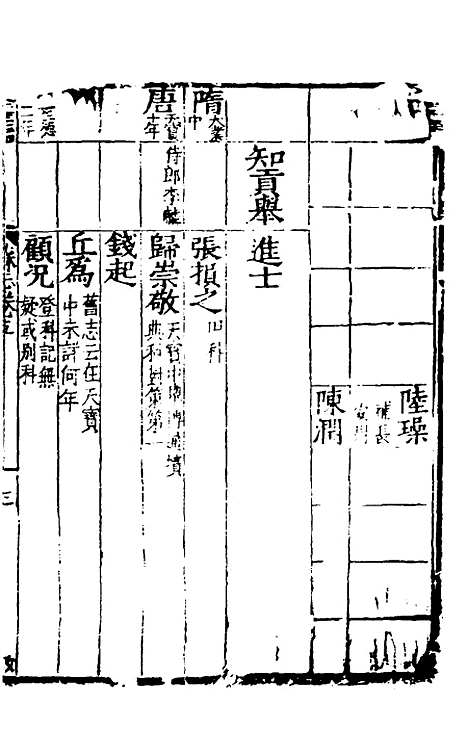 陸璪
補長
陳潤
知貢舉
進士
隋大業中
張損之
唐天寶十年侍郎李麟
歸崇敬天寶中擧博通墳典科對策第一
錢起
丘為舊志云在天寶中未詳何年
顧況登科記無疑或別科
三